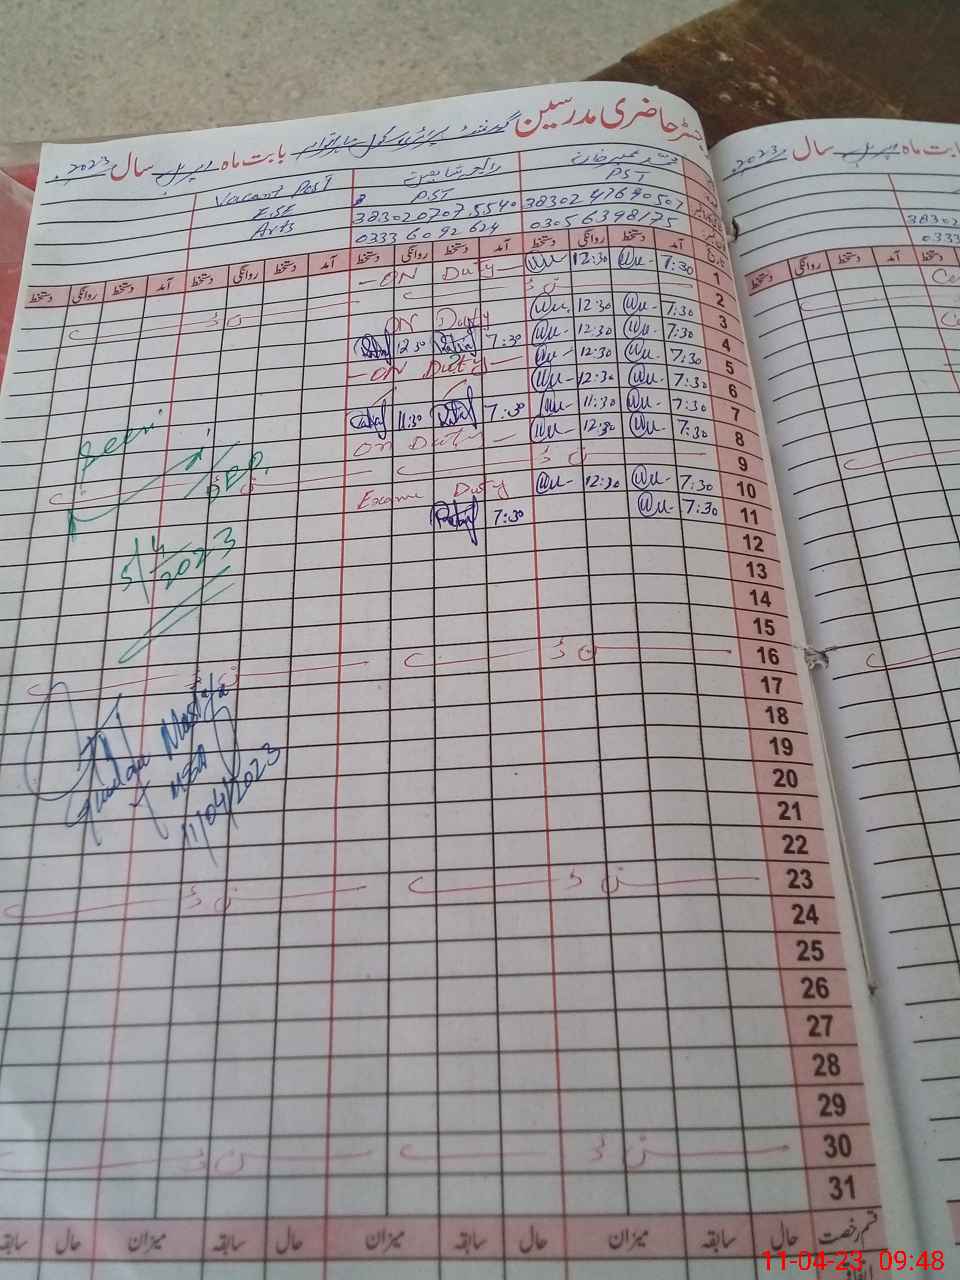 رجسٹر حاضری مدرسین گورنمنٹ پرائمری سکول بابت ماہ اپریل سال 2023
PST
38302 4764050 7
0305 6398175
PST
383020707 5540
0333 6092624
Vacant Post
ESE
Arts
تاریخ آمد دستخط روانگی دستخط آمد دستخط روانگی دستخط آمد دستخط روانگی دستخط آمد دستخط روانگی دستخط
1 7:30 12:30 - ON Duty -
2 سنڈے
3 7:30 12:30 ON Duty
4 7:30 12:30 7:30 12:30
5 7:30 12:30 - ON Duty -
6 7:30 12:30
7 7:30 11:30 7:30 11:30
8 7:30 12:30 ON Duty -
9 سنڈے
10 7:30 12:30 Exame Duty
11 7:30 7:30
12
13
14
15
16 سنڈے
17
18
19
20
21
22
23 سنڈے
24
25
26
27
28
29
30 سنڈے
31
Seen
5/4/2023
Ghulam Mustafa
MEA
11/04/2023
قسم رخصت حال سابقہ میزان حال سابقہ میزان حال سابقہ میزان حال سابقہ
بابت ماہ اپریل سال 2023
38302
0333
آمد دستخط روانگی دستخط
11-04-23 09:48